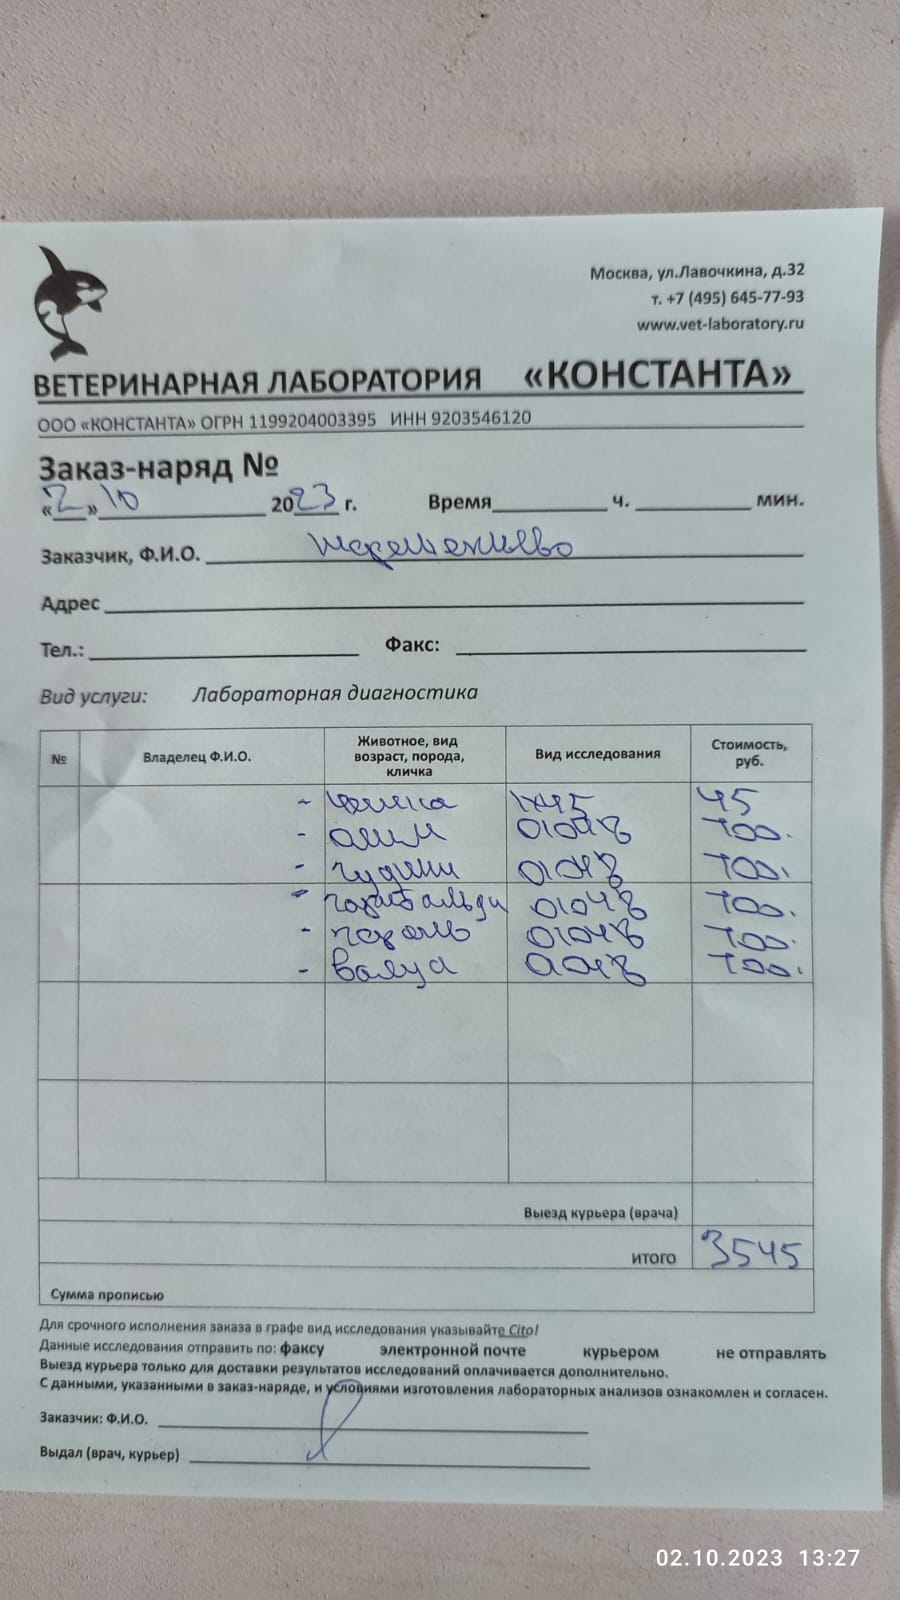 Москва, ул.Лавочкина, д.32
т. +7 (495) 645-77-93
www.vet-laboratory.ru
ВЕТЕРИНАРНАЯ ЛАБОРАТОРИЯ «КОНСТАНТА»
ООО «КОНСТАНТА» ОГРН 1199204003395 ИНН 9203546120
Заказ-наряд №
«2» 10 2023 г. Время ч. мин.
Заказчик, Ф.И.О.
Адрес
Тел.: Факс:
Вид услуги: Лабораторная диагностика
№ Владелец Ф.И.О. Животное, вид возраст, порода, кличка Вид исследования Стоимость, руб.
- 45
- 700.
- гудини 700.
- гарибальди 700.
- 700.
- 700.
Выезд курьера (врача)
ИТОГО 3545
Сумма прописью
Для срочного исполнения заказа в графе вид исследования указывайте Cito!
Данные исследования отправить по: факсу электронной почте курьером не отправлять
Выезд курьера только для доставки результатов исследований оплачивается дополнительно.
С данными, указанными в заказ-наряде, и условиями изготовления лабораторных анализов ознакомлен и согласен.
Заказчик: Ф.И.О.
Выдал (врач, курьер)
02.10.2023 13:27